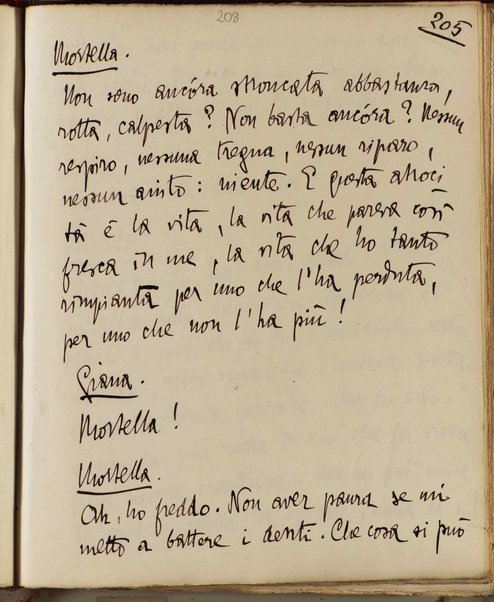 208
205
Mortella.
Non sono ancóra stroncata abbastanza,
rotta, calpesta? Non basta ancóra? Nessun
respiro, nessuna tregua, nessun riparo,
nessun aiuto: niente. E questa atroci
tà è la vita, la vita che pareva così
fresca in me, la vita che ho tanto
rimpianta per uno che l'ha perduta,
per uno che non l'ha più!
Giana.
Mortella!
Mortella.
Ah, ho freddo. Non aver paura se mi
metto a battere i denti. Che cosa si può